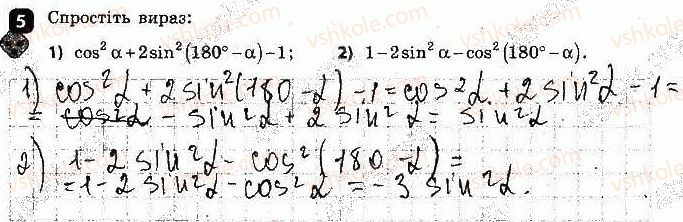 5 Спростіть вираз:
1) cos² α+2sin² (180°−α)−1; 2) 1−2sin² α−cos² (180°−α).
1) cos²α + 2 sin²(180 − α) − 1 = cos²α + 2 sin²α − 1 =
= cos²α − sin²α + 2 sin²α = sin²α.
2) 1 − 2 sin²α − cos²(180 − α) =
= 1 − 2 sin²α − cos²α = − 3 sin²α.
vshkole.com